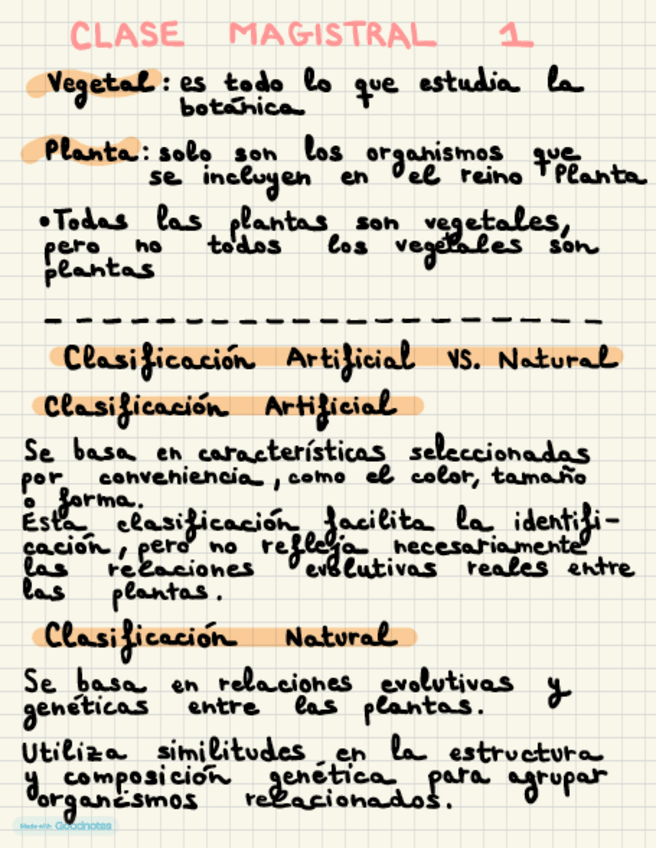 CLASE MAGISTRAL 1
Vegetal: es todo lo que estudia la
botánica
Planta: solo son los organismos que
se incluyen en el reino Planta
•Todas las plantas son vegetales,
pero no todos los vegetales son
plantas
Clasificación Artificial VS. Natural
Clasificación Artificial
Se basa en características seleccionadas
por conveniencia, como el color, tamaño
o forma.
Esta clasificación facilita la identifi-
cación, pero no refleja necesariamente
las relaciones evolutivas reales entre
las plantas.
Clasificación Natural
Se basa en relaciones evolutivas y
genéticas entre las plantas.
Utiliza similitudes en la estructura
y composición genética para agrupar
organismos relacionados.
Made with Goodnotes